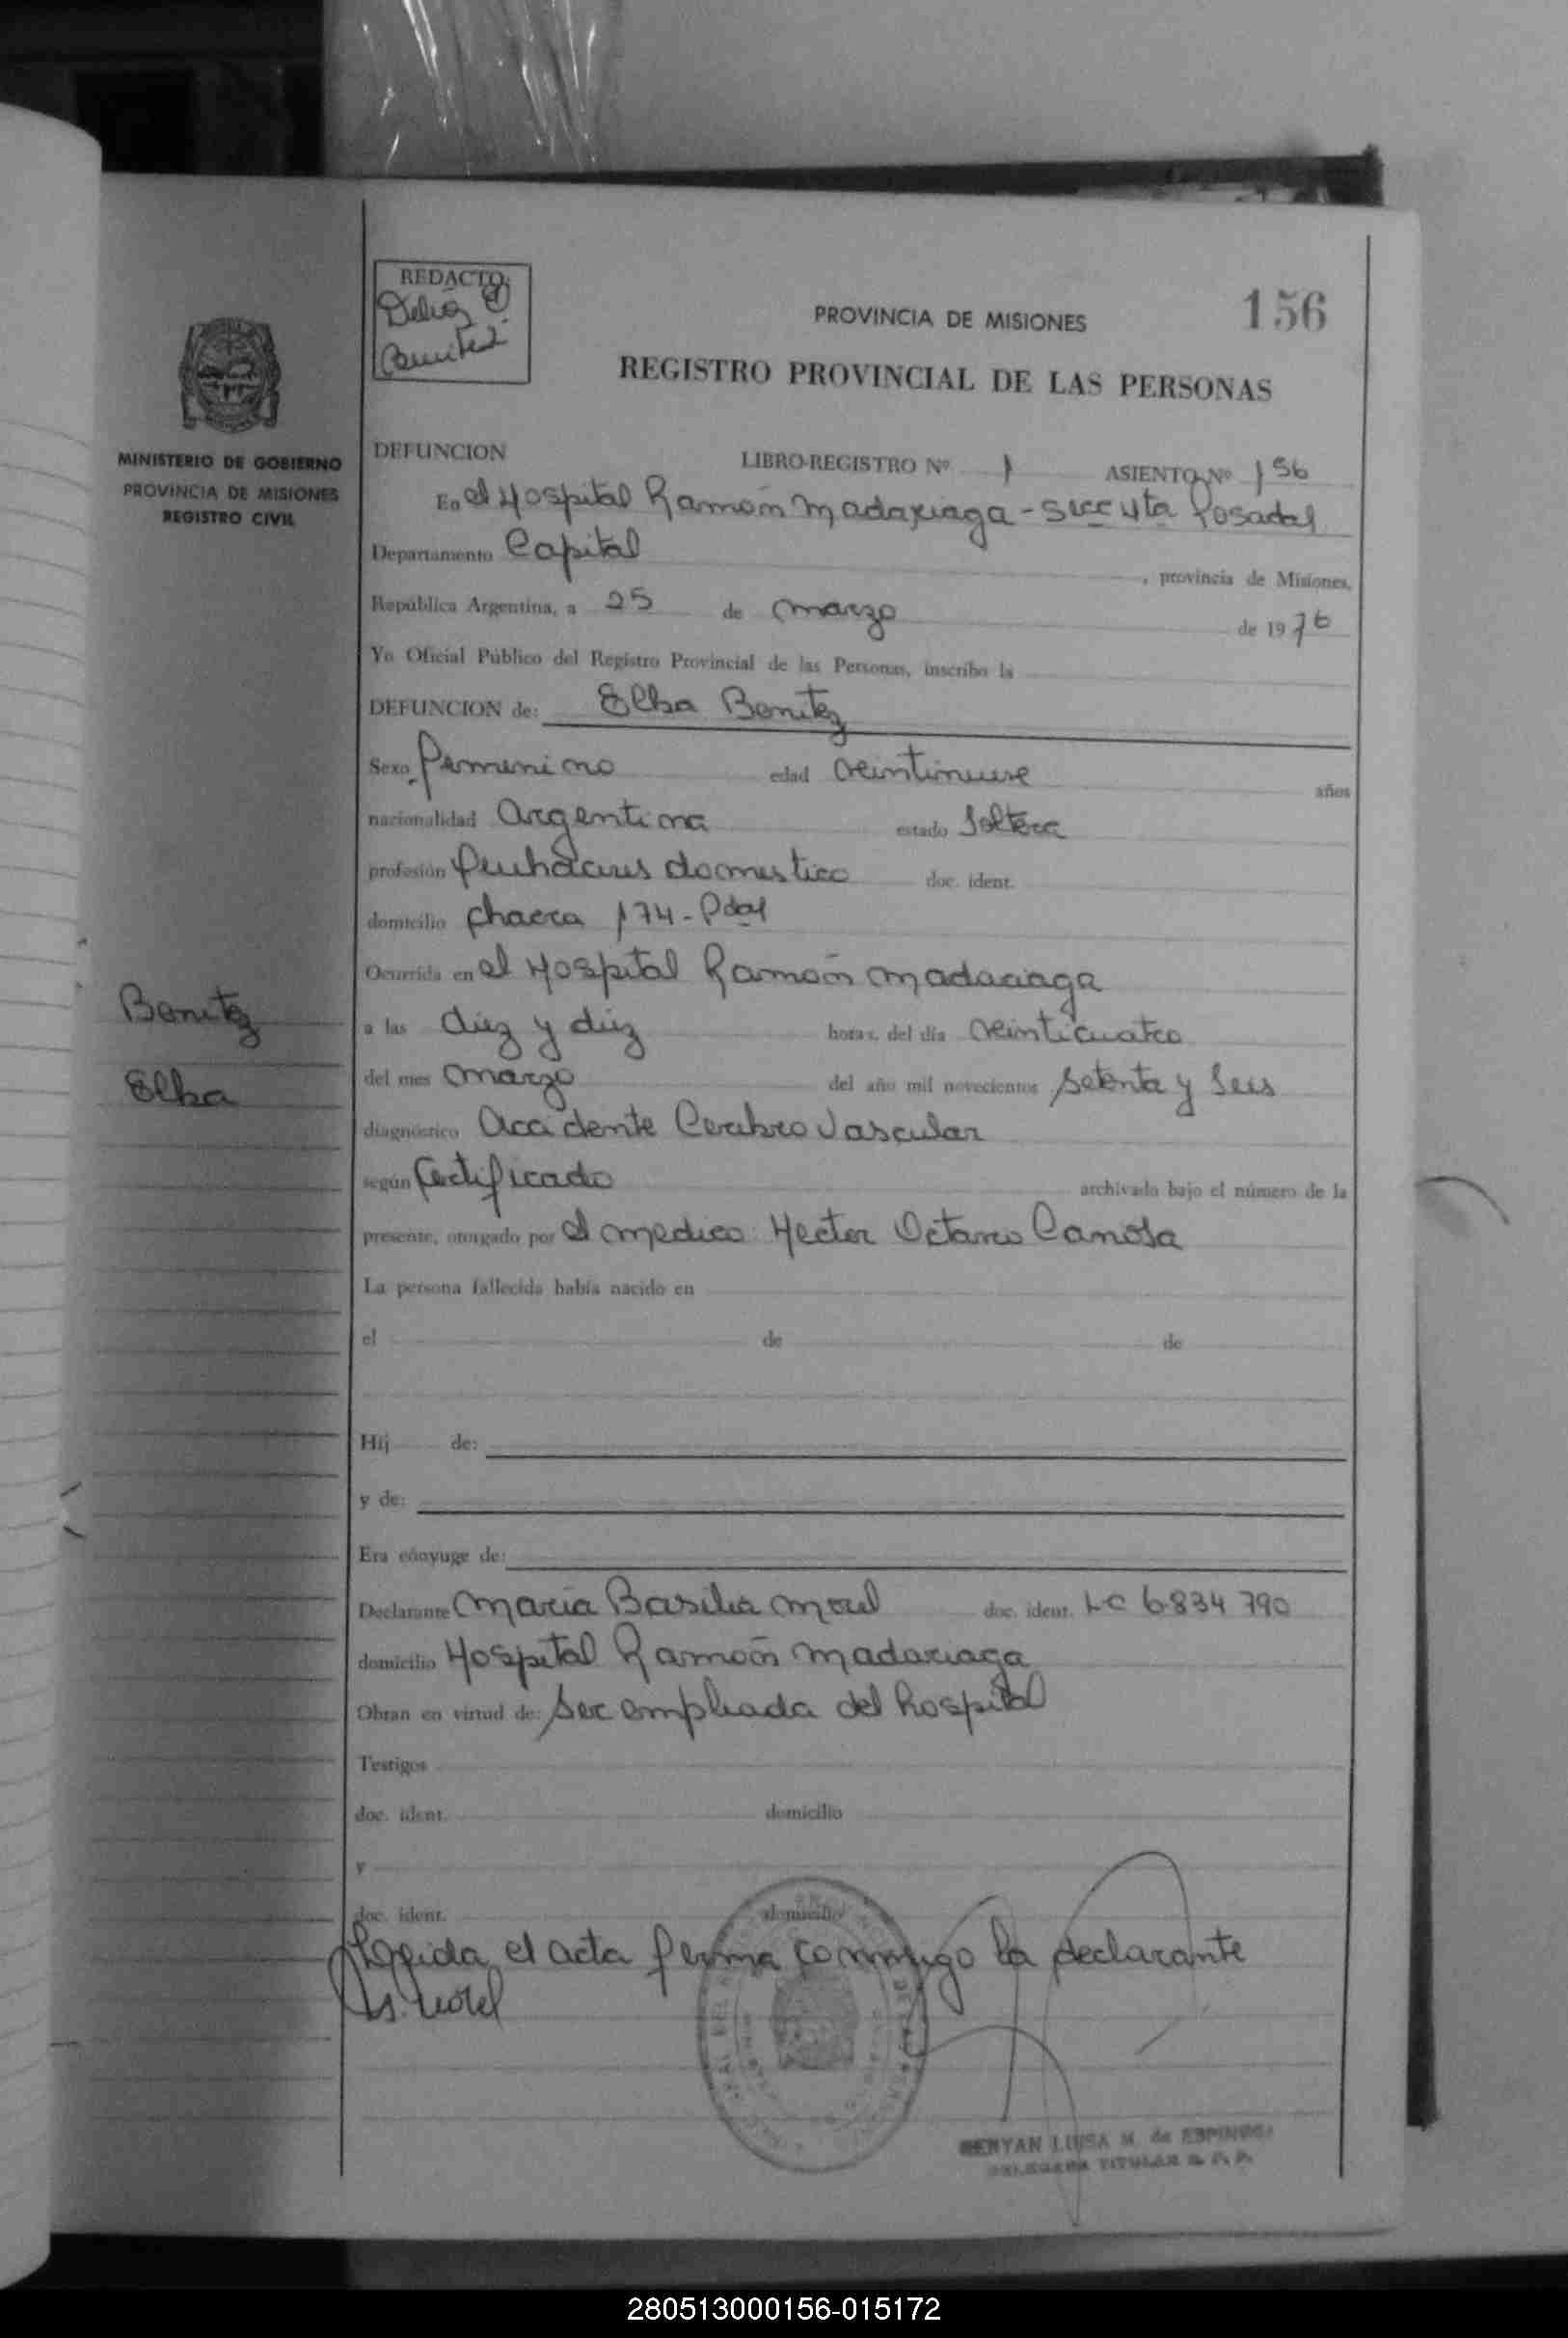 REDACTO:
Delia
Benitez
PROVINCIA DE MISIONES
156
REGISTRO PROVINCIAL DE LAS PERSONAS
MINISTERIO DE GOBIERNO
PROVINCIA DE MISIONES
REGISTRO CIVIL
DEFUNCION LIBRO-REGISTRO Nº 1 ASIENTO Nº 156
En el Hospital Ramón Madariaga - Secc 4ta Posadas
Departamento Capital, provincia de Misiones,
República Argentina, a 25 de marzo de 1976
Yo Oficial Público del Registro Provincial de las Personas, inscribo la
DEFUNCION de: Elba Benitez
Sexo femenino edad veintinueve años
nacionalidad Argentina estado Soltera
profesión domestico doc. ident.
domicilio chacra 174 - Pdas
Ocurrida en el Hospital Ramón Madariaga
a las diez y diez horas, del día veinticuatro
del mes marzo del año mil novecientos setenta y seis
diagnóstico Accidente Cerebro Vascular
según Certificado archivado bajo el número de la
presente, otorgado por el medico: Hector Octavio Canosa
La persona fallecida había nacido en
el de de
Hij de:
y de:
Era cónyuge de:
Benitez
Elba
Declarante Maria Basilia Morel doc. ident. LC 6834790
domicilio Hospital Ramón Madariaga
Obran en virtud de: ser empleada del hospital
Testigos
doc. ident. domicilio
y
doc. ident. domicilio
el acta firma conmigo la declarante
Morel
LUISA M. de ESPINOSA
TITULAR R. P. P.
280513000156-015172